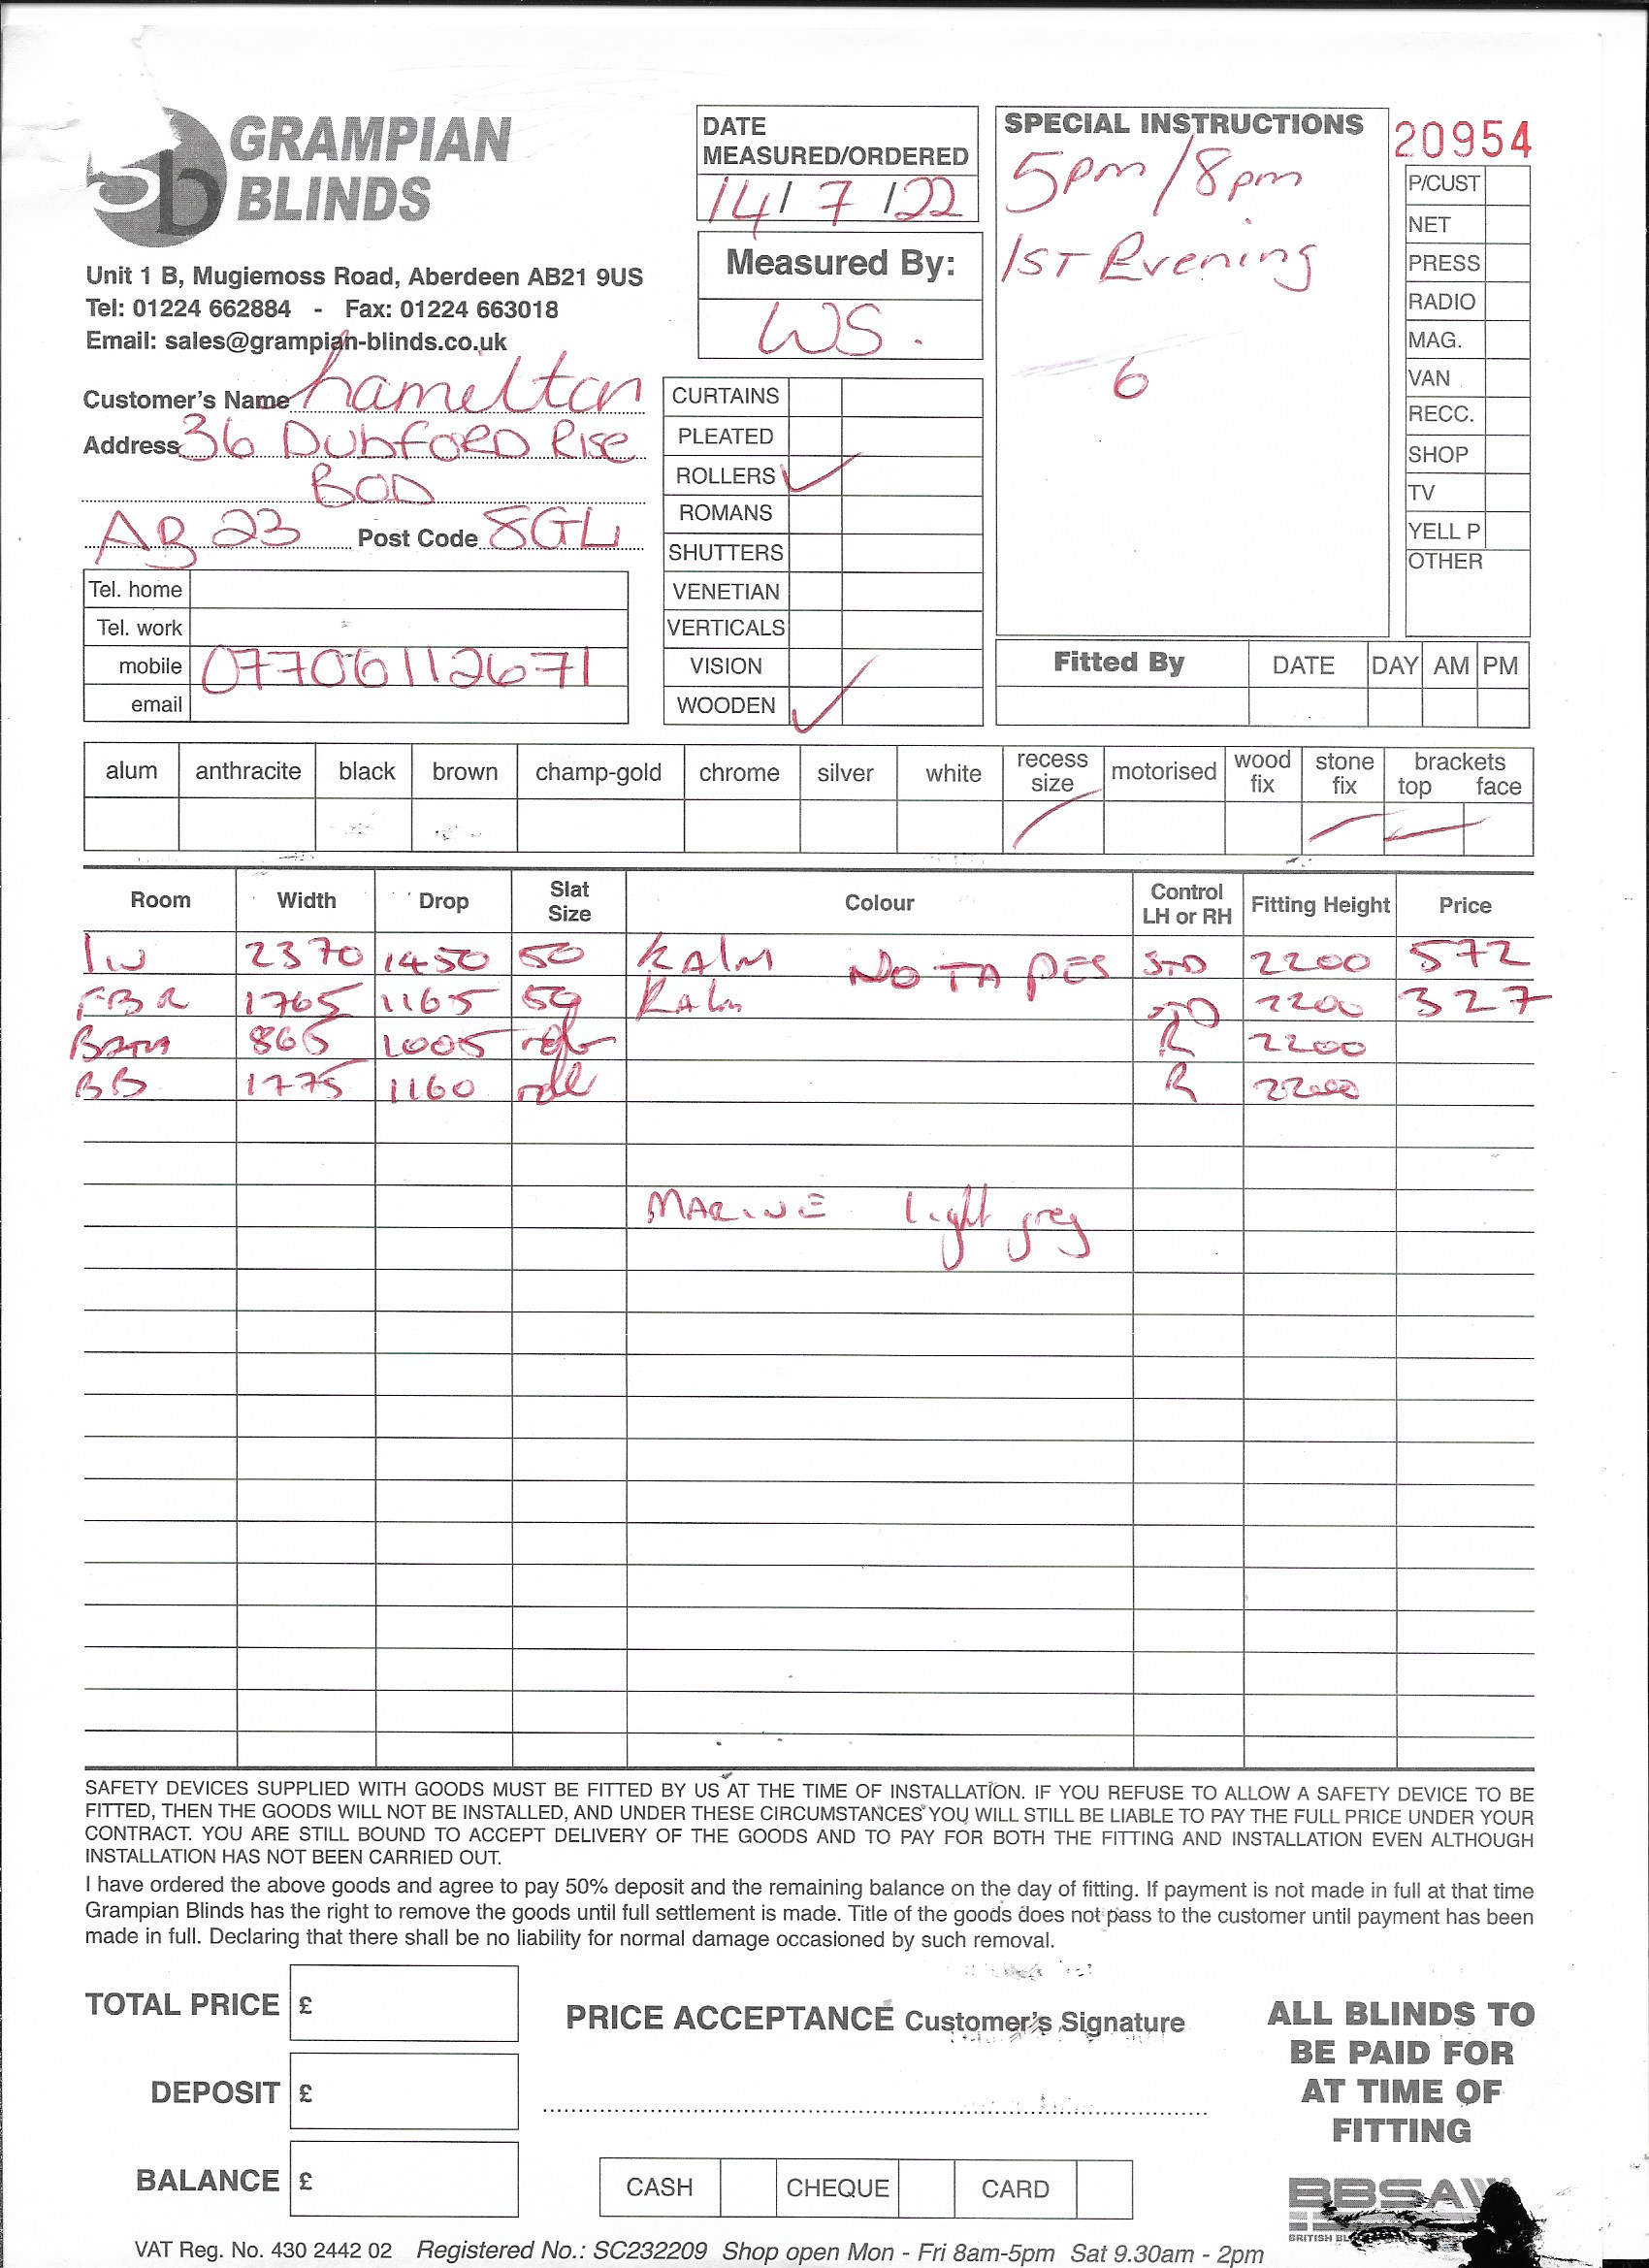 GRAMPIAN
BLINDS
Unit 1 B, Mugiemoss Road, Aberdeen AB21 9US
Tel: 01224 662884 - Fax: 01224 663018
Email: sales@grampian-blinds.co.uk
Customer's Name hamilton
Address 36 Dubford Rise
BOD
AB 23 Post Code 8GL
Tel. home
Tel. work
mobile 07706112671
email
DATE
MEASURED/ORDERED
14/7/22
Measured By:
WS.
CURTAINS
PLEATED
ROLLERS ✓
ROMANS
SHUTTERS
VENETIAN
VERTICALS
VISION
WOODEN ✓
SPECIAL INSTRUCTIONS
5pm/8pm
1ST Evening
6
20954
P/CUST
NET
PRESS
RADIO
MAG.
VAN
RECC.
SHOP
TV
YELL P
OTHER
Fitted By DATE DAY AM PM
alum anthracite black brown champ-gold chrome silver white recess size motorised wood fix stone fix brackets top face
Room Width Drop Slat Size Colour Control LH or RH Fitting Height Price
2370 1450 50 KALM NO TAPES STD 2200 572
FBR 1765 1165 50 Kalm STD 2200 327
BATH 865 1005 R 2200
BB 1775 1160 roll R 2200
MARINE light grey
SAFETY DEVICES SUPPLIED WITH GOODS MUST BE FITTED BY US AT THE TIME OF INSTALLATION. IF YOU REFUSE TO ALLOW A SAFETY DEVICE TO BE
FITTED, THEN THE GOODS WILL NOT BE INSTALLED, AND UNDER THESE CIRCUMSTANCES YOU WILL STILL BE LIABLE TO PAY THE FULL PRICE UNDER YOUR
CONTRACT. YOU ARE STILL BOUND TO ACCEPT DELIVERY OF THE GOODS AND TO PAY FOR BOTH THE FITTING AND INSTALLATION EVEN ALTHOUGH
INSTALLATION HAS NOT BEEN CARRIED OUT.
I have ordered the above goods and agree to pay 50% deposit and the remaining balance on the day of fitting. If payment is not made in full at that time
Grampian Blinds has the right to remove the goods until full settlement is made. Title of the goods does not pass to the customer until payment has been
made in full. Declaring that there shall be no liability for normal damage occasioned by such removal.
TOTAL PRICE £
DEPOSIT £
BALANCE £
PRICE ACCEPTANCE Customer's Signature
CASH CHEQUE CARD
ALL BLINDS TO
BE PAID FOR
AT TIME OF
FITTING
BBSA
BRITISH
VAT Reg. No. 430 2442 02 Registered No.: SC232209 Shop open Mon - Fri 8am-5pm Sat 9.30am - 2pm